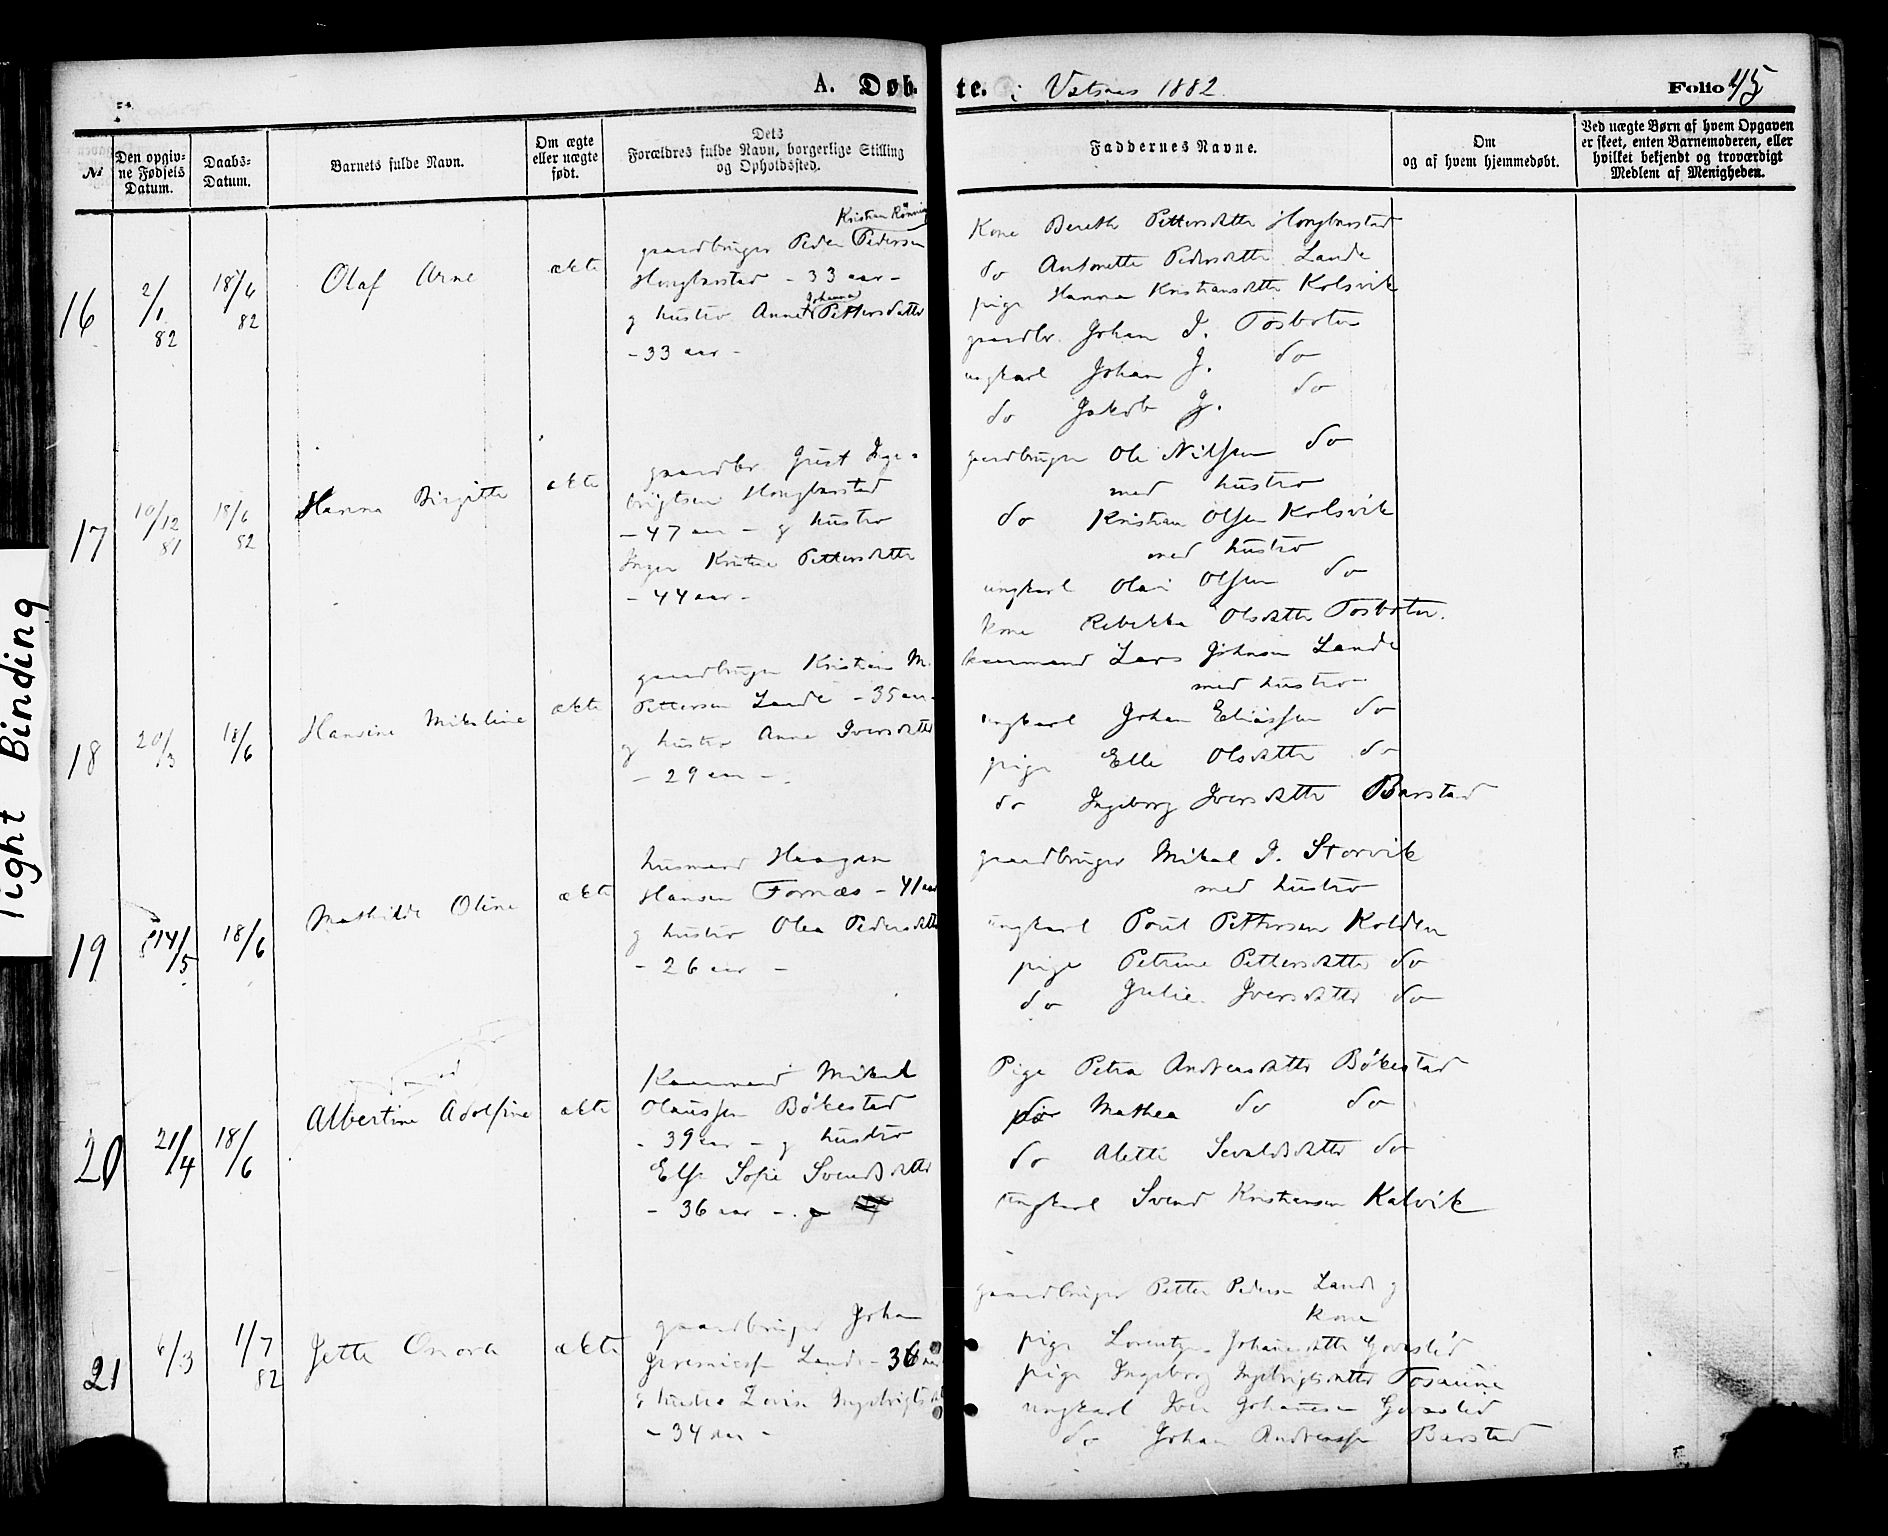 A. Døb-
te. i Vatnæs 1882.
Folio 45
№
Den opgiv-
ne Fødsels
Datum.
Daabs-
Datum.
Barnets fulde Navn.
Om ægte
eller uægte
født.
Dets
Forældres fulde Navn, borgerlige Stilling
og Opholdssted.
Faddernes Navne.
Om
og af hvem hjemmedøbt.
Ved uægte Børn af hvem Opgaven
er skeet, enten Barnemoderen, eller
hvilket bekjendt og troværdigt
Medlem af Menigheden.
16
2/1
82
18/6
82
Olaf Arne
ækte
Kristian
gaardbruger Peder Pedersen
- 33 aar -
Johanna
g hustro Anne Pettersdatter
- 33 aar -
Kone Bereth Pettersdatter
do Antonette Pedersdatter Lande
pige Hanna Kristiansdatter Kolsvik
gaardbr. Johan J. Tosboten
ungkarl Johan J. do
do Jakob J. do
17
10/12
81
18/6
82
Hanna Birgitte
ækte
gaardbr Just Inge-
brigtsen
- 47 aar - g hustro
Inger Kristine Pettersdatter
- 44 aar -
gaardbruger Ole Nilssen do
med hustro
do Kristian Olsen Kolsvik
med hustro
ungkarl Olai Olsen do
kone Rebekka Olsdatter Tosboten.
18
20/3
18/6
Hansine Mikaline
ækte
gaardbruger Kristian M.
Pettersen Lande - 35 aar -
g hustro Anna Iversdatter
- 29 aar -
kaarmand Lars Johnsen Lande
med hustro
ungkarl Johan Eliassen do
pige Elli Olsdatter do
do Ingeborg Iversdatter Barstad
19
14/5
18/6
Mathilde Oline
ækte
husmand Haagen
Hansen Fornæs - 41 aar
g hustro Olea Pedersdatter
- 26 aar -
gaardbruger Mikal J. Storvik
med hustro
ungkarl Poul Pettersen Kolden
pige Petrine Pettersdatter do
do Julie Iversdatter do
20
21/4
18/6
Albertine Adolfine
ækte
Kaarmand Mikal
Olaussen Bøkestad
- 39 aar - g hustro
Else Sofie Svendsdatter
- 36 aar -
Pige Petra Andreasdatter Bøkestad
do Mathea do do
do Aletti Sevaldsdatter do
ungkarl Svend Kristiansen Kalvik
21
6/3
1/7
82
Jette Onora
ækte
gaardbruger Johan
Jeremiess Lande - 36 aar
g hustro Lovise Ingebrigtsdt
- 34 aar -
gaardbruger Petter Pedersen Lande g
kone
pige Johannesdatter
pige Ingeborg Ingebrigtsdatter Tosaune
ungkarl Iver Johannesen
do Johan Andreassen Barstad
Tight Binding